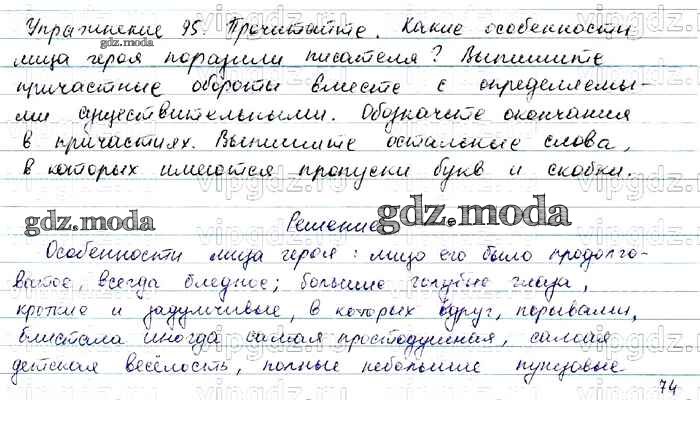 Упражнение 95. Прочитайте. Какие особенности
лица героя поразили писателя? Выпишите
причастные обороты вместе с определяемы-
ми существительными. Обозначьте окончания
в причастиях. Выпишите остальные слова,
в которых имеются пропуски букв и скобки.
gdz.moda
gdz.moda
Решение
gdz.moda
Особенности лица героя: лицо его было продолго-
ватое, всегда бледное; большие голубые глаза,
кроткие и задумчивые, в которых вдруг, порывами,
блистала иногда самая простодушная, самая
детская весёлость, полные небольшие пунцовые
74